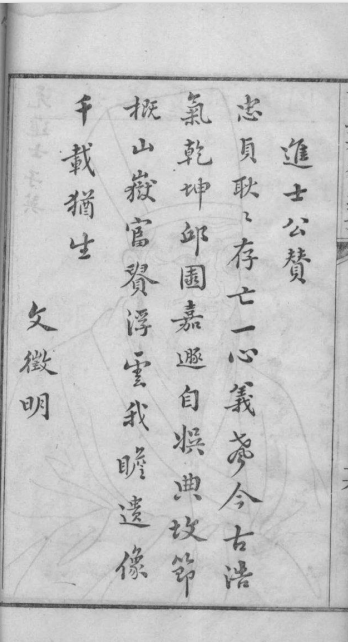 進士公贊
忠貞耿〻存亡一心義声今古浩
氣乾坤邱園嘉遯自娛典墳節
概山嶽富貴浮雲我瞻遺像
千載猶生
文徵明